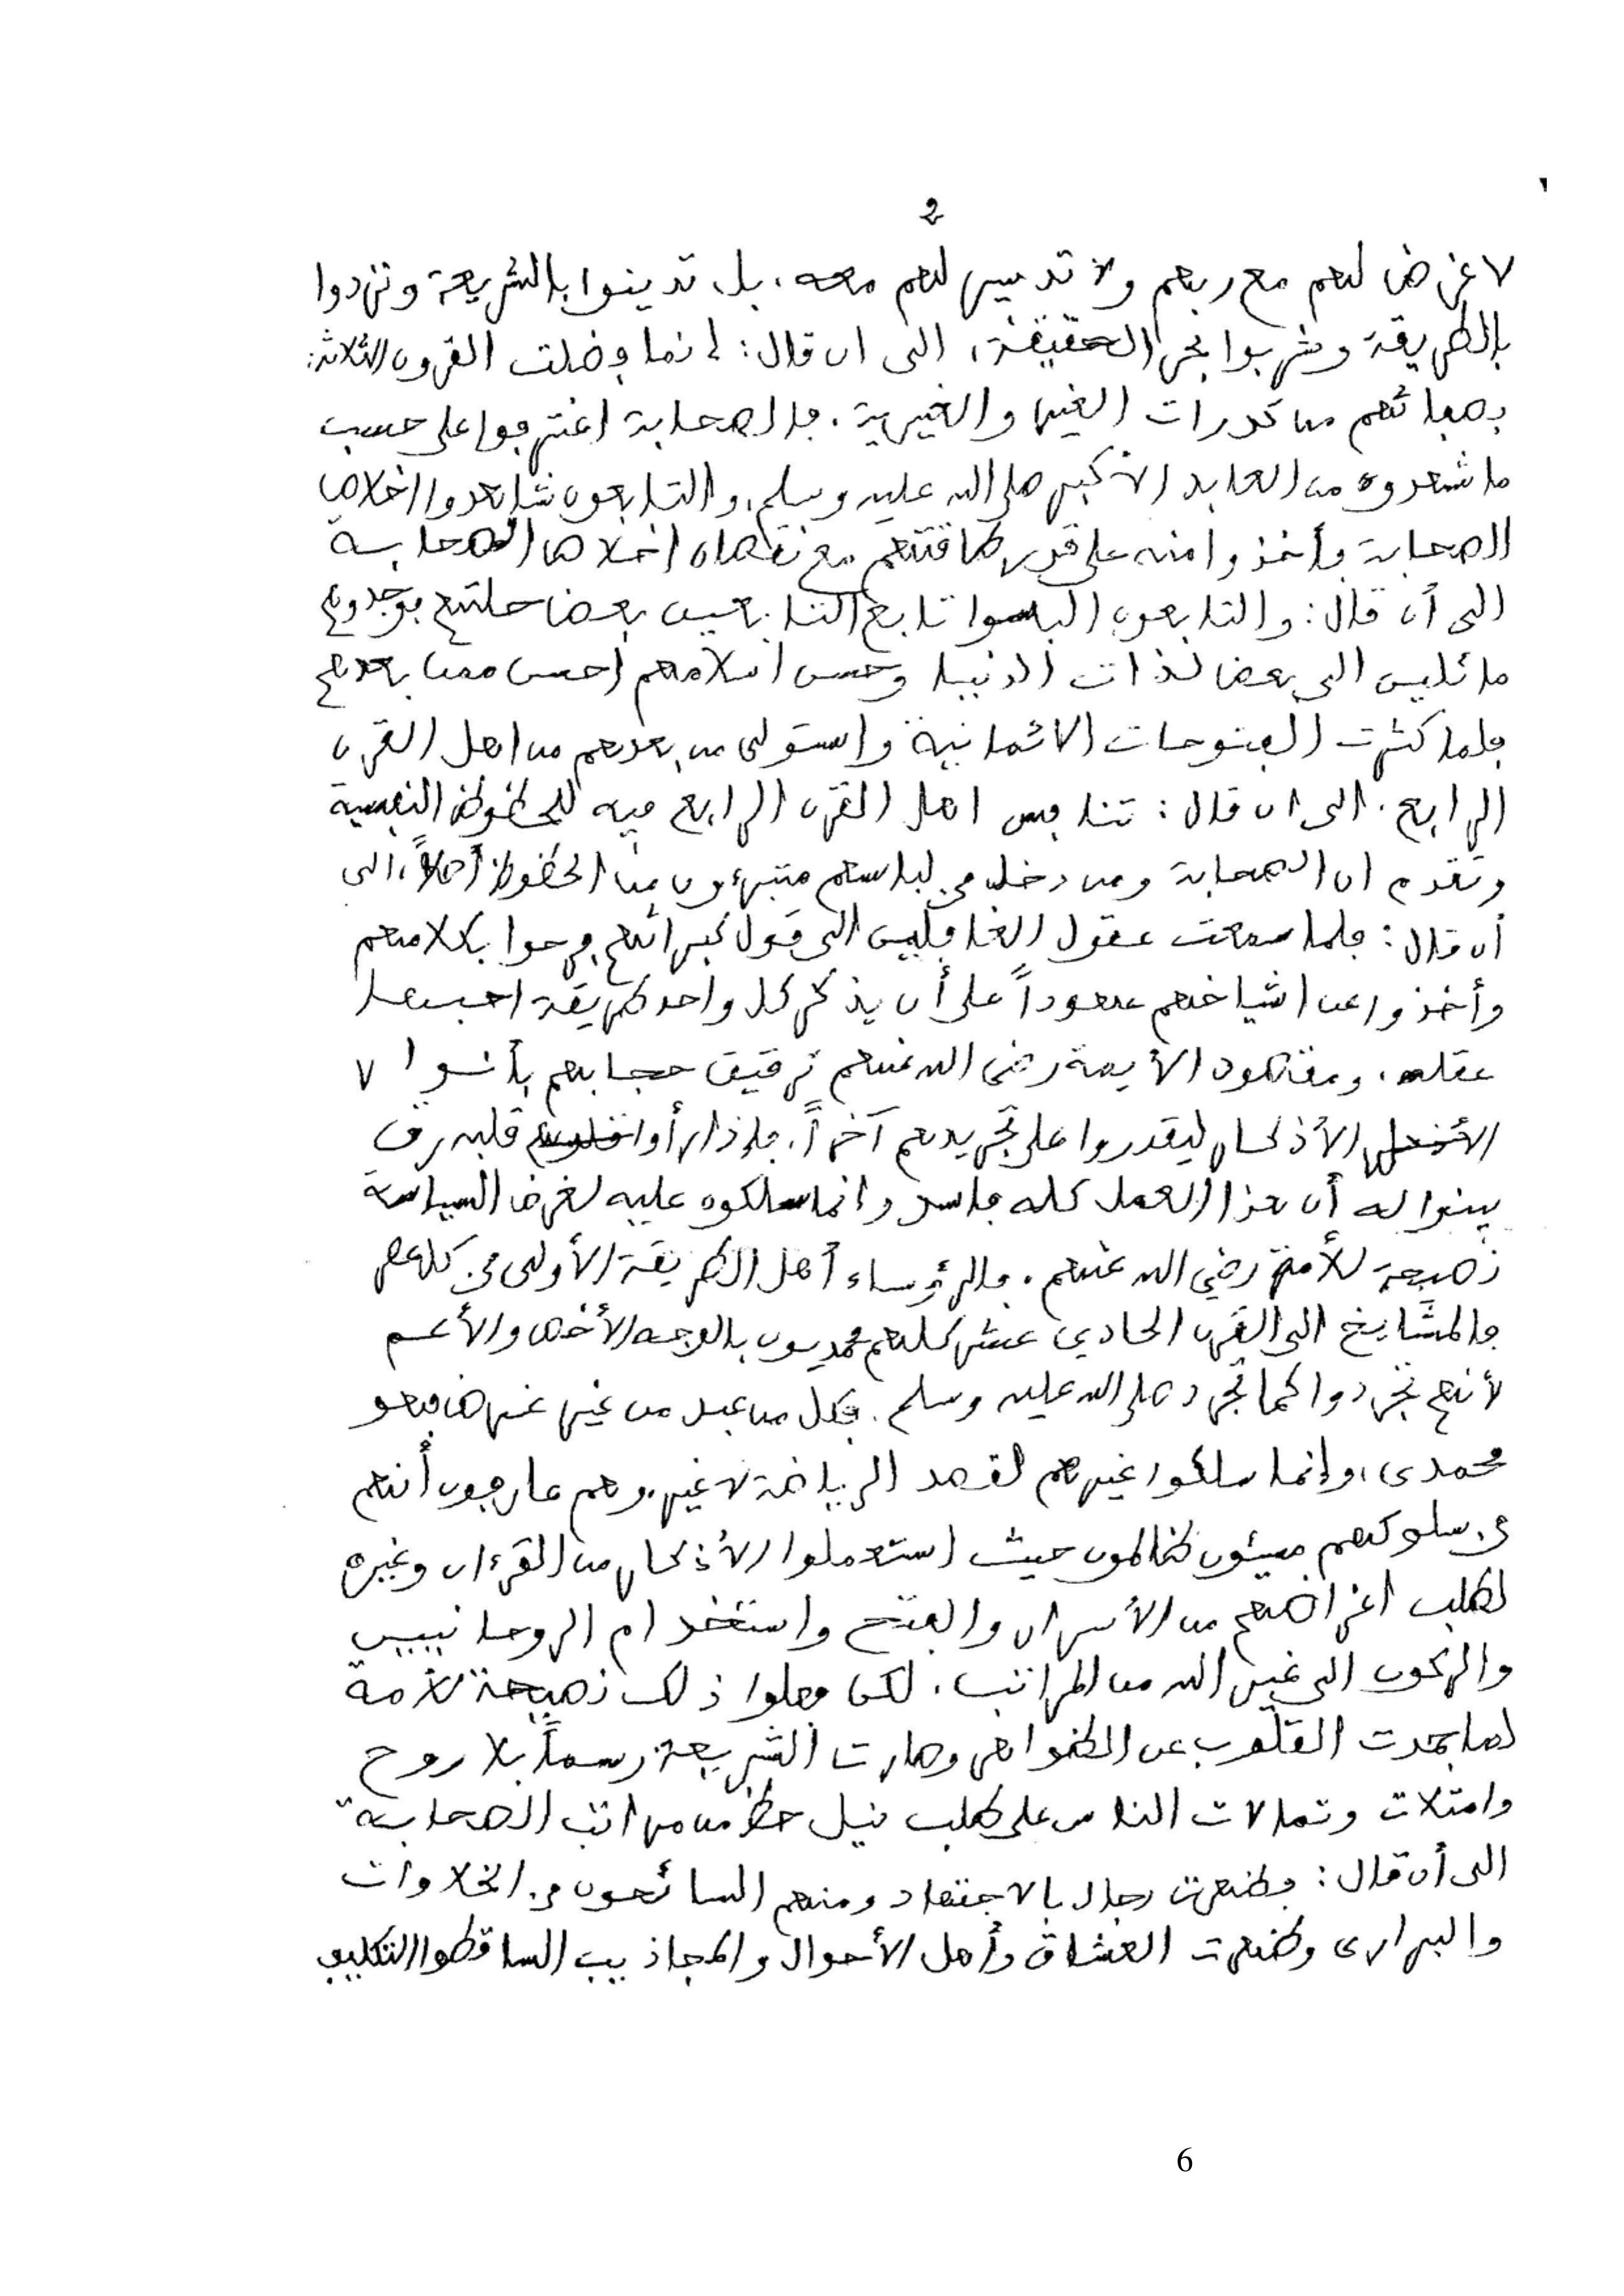 2
لا غرض لهم مع ربهم ولا تدبير لهم معه، بل تدينوا بالشريعة وتزودوا
بالطريقة وشربوا بحر الحقيقة، الى ان قال: انما فضلت القرون الثلاثة:
بصفائهم من كدورات الغير والغيرية. فالصحابة اغترفوا على حسب
ما شهدوه من العابد الأكبر صلى الله عليه وسلم، والتابعون شاهدوا اخلاص
الصحابة فأخذوا منه على قدر طاقتهم مع نقصان اخلاص الصحابة
الى أن قال: والتابعون البسوا تابع التابعين بعض حلتهم فوجدوهم
مائلين الى بعض لذات الدنيا وحسن اسلامهم احسن ممن بعدهم
فلما كثرت الفتوحات الائمانية واستولى من بعدهم من اهل القرن
الرابع. الى ان قال: تنافس اهل القرن الرابع فيه للحظوظ النفسية
وتقدم ان الصحابة ومن دخل في لباسهم متبرءون من الحظوظ أصلاً، الى
أن قال: فلما سمعت عقول الغافلين الى قول كبرائهم فرحوا بكلامهم
وأخذوا عن اشياخهم عهوداً على أن يذكر كل واحد طريقة احبها
عقله، ومقصود الأيمة رضى الله عنهم ترقيق حجابهم بأنوا
الأذكار ليقدروا على تجريدهم آخراً. فإذا رأوا قلبه رق
بينوا له أن هذا العمل كله فاسد وانما سلكوه عليه لغرض السياسة
نصيحة للأمة رضي الله عنهم. فالرؤساء أهل الطريقة الأولى في كل عصر
فالمشايخ الى القرن الحادي عشر كلهم محمديون بالوجه الأخص والأعم
لأنهم تجردوا كما تجرد صلى الله عليه وسلم. فكل من عبد من غير غرض فهو
محمدى، وإنما سلكوا غيرهم لقصد الرياضة لا غير، وهم عارفون أنهم
في سلوكهم مسيئون ظالمون حيث استعملوا الأذكار من القرءان وغيره
لطلب اغراضهم من الأسرار والفتح واستخدام الروحانيين
والركون الى غير الله من المراتب، لكن فعلوا ذلك نصيحة للأمة
لما بعدت القلوب عن الظواهر وصارت الشريعة رسماً بلا روح
وامتلات وتمالات الناس على طلب نيل حظ من مراتب الصحابة
الى أن قال: فظهرت رجال بالاجتهاد ومنهم السائحون في الخلاوات
والبرارى وظهرت العشاق وأهل الأحوال والمجاذيب الساقطوا التكليف
6